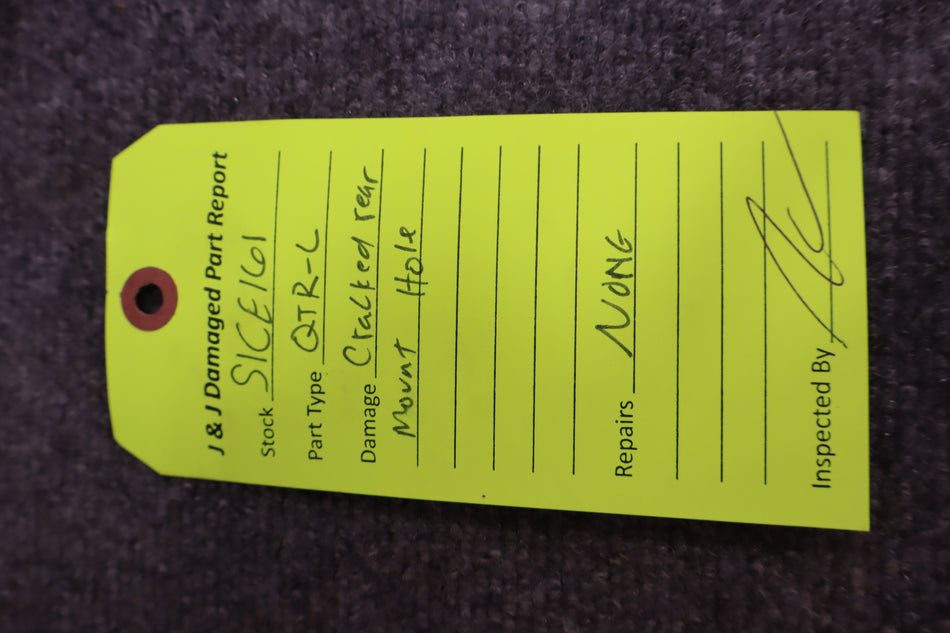 J & J Damaged Part Report
Stock SICE161
Part Type QTR-L
Damage Cracked rear
Mount Hole
Repairs NONE
Inspected By